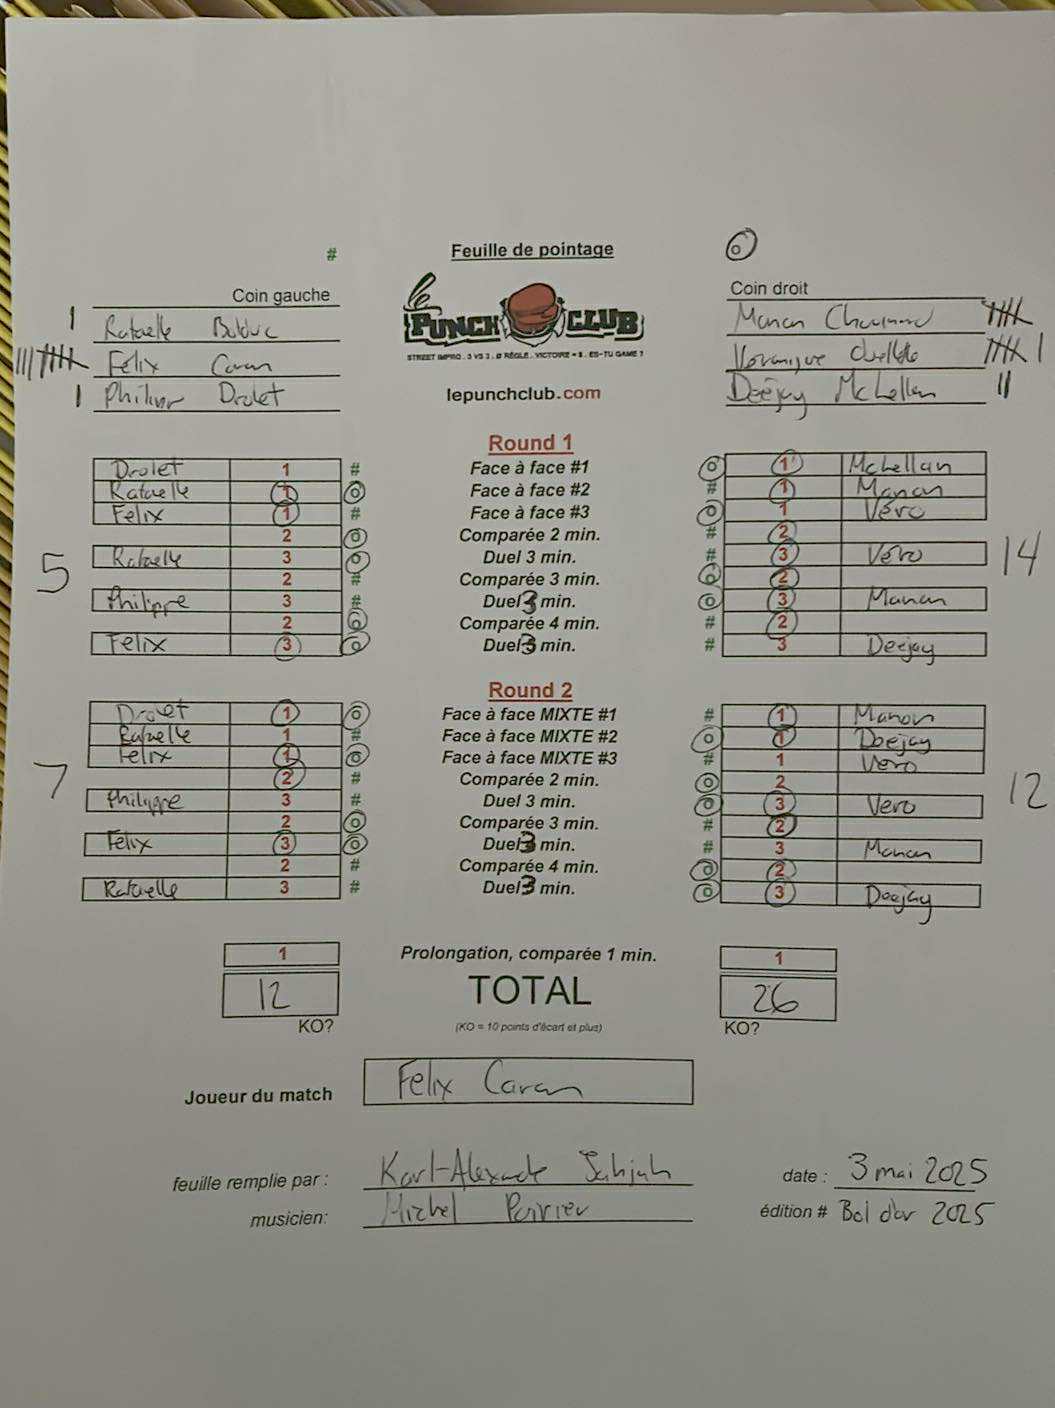 # Feuille de pointage O
Coin gauche Coin droit
le PUNCH CLUB
STREET IMPRO . 3 VS 3 . Ø RÈGLE . VICTOIRE = $ . ES-TU GAME ?
lepunchclub.com
Rafaelle Bolduc Manon
Felix Véronique Ouellette
Philippe Drolet Deejay McLellan
Round 1
Drolet 1 # Face à face #1 O 1 McLellan
Rafaelle 1 O Face à face #2 # 1 Manon
Felix 1 # Face à face #3 O 1 Véro
2 O Comparée 2 min. # 2
Rafaelle 3 O Duel 3 min. # 3 Véro
5 2 # Comparée 3 min. O 2 14
Philippe 3 # Duel 3 min. O 3 Manon
2 O Comparée 4 min. # 2
Felix 3 O Duel 3 min. # 3 Deejay
Round 2
Drolet 1 O Face à face MIXTE #1 # 1 Manon
Rafaelle 1 # Face à face MIXTE #2 O 1 Deejay
Felix 1 O Face à face MIXTE #3 # 1 Vero
7 2 # Comparée 2 min. O 2 12
Philippe 3 # Duel 3 min. O 3 Vero
2 O Comparée 3 min. # 2
Felix 3 O Duel 3 min. # 3 Manon
2 # Comparée 4 min. O 2
Rafaelle 3 # Duel 3 min. O 3 Deejay
1 Prolongation, comparée 1 min. 1
12 TOTAL 26
KO? (KO = 10 points d'écart et plus) KO?
Joueur du match Felix
feuille remplie par : Karl-Alexandre date : 3 mai 2025
musicien: Michel Poirier édition # Bol d'or 2025